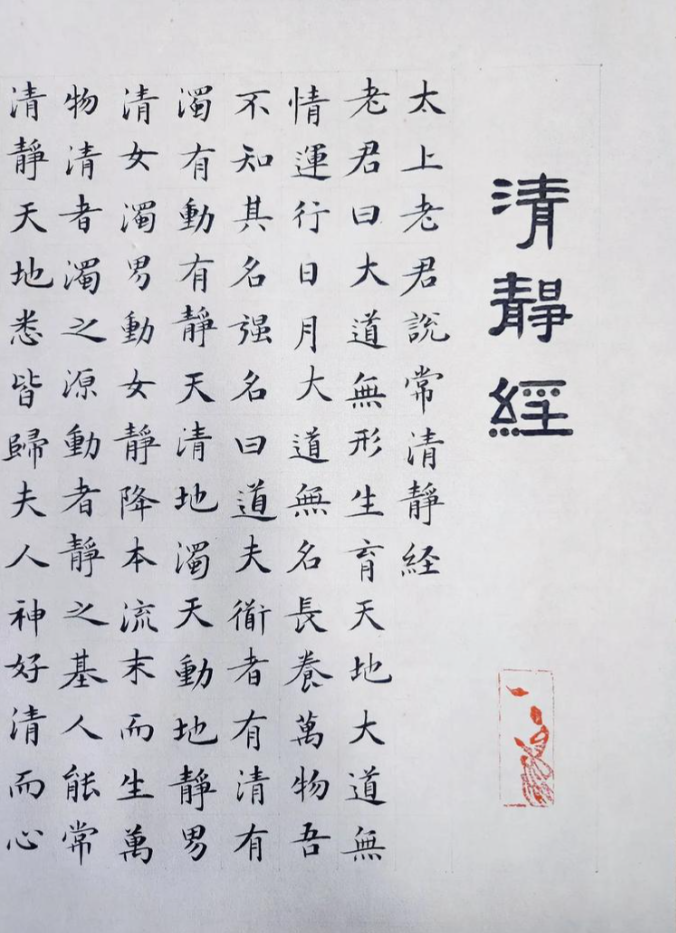 清靜經
太上老君說常清靜経
老君曰大道無形生育天地大道無
情運行日月大道無名長養萬物吾
不知其名强名曰道夫衜者有清有
濁有動有靜天清地濁天動地靜男
清女濁男動女靜降本流末而生萬
物清者濁之源動者靜之基人能常
清靜天地悉皆歸夫人神好清而心